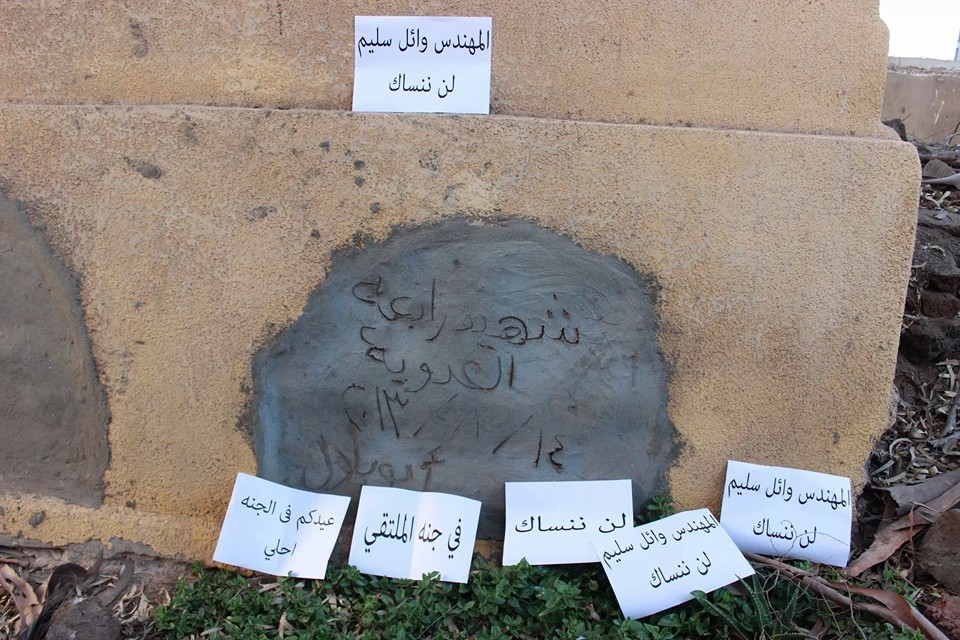 المهندس وائل سليم
لن ننساك
شهيد رابعة
العدوية
١٤ / ٨ / ٢٠١٣
عيدكم فى الجنه
احلي
في جنه الملتقي
لن ننساك
المهندس وائل سليم
لن ننساك
المهندس وائل سليم
لن ننساك